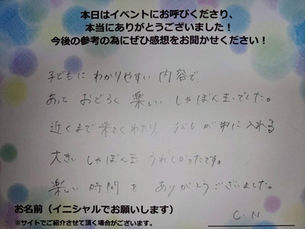 本日はイベントにお呼びくださり、
本当にありがとうございました！
今後の参考の為にぜひ感想をお聞かせください！
子どもに わかりやすい 内容で
あっと おどろく 楽しい しゃぼん玉でした。
近くまで 来てくれたり 子どもが中に入れる
大きい しゃぼん玉 うれしかったです。
楽しい 時間を ありがとうございました。
お名前（イニシャルでお願いします）
C.N
※サイトでご紹介させて頂く場合がございます。